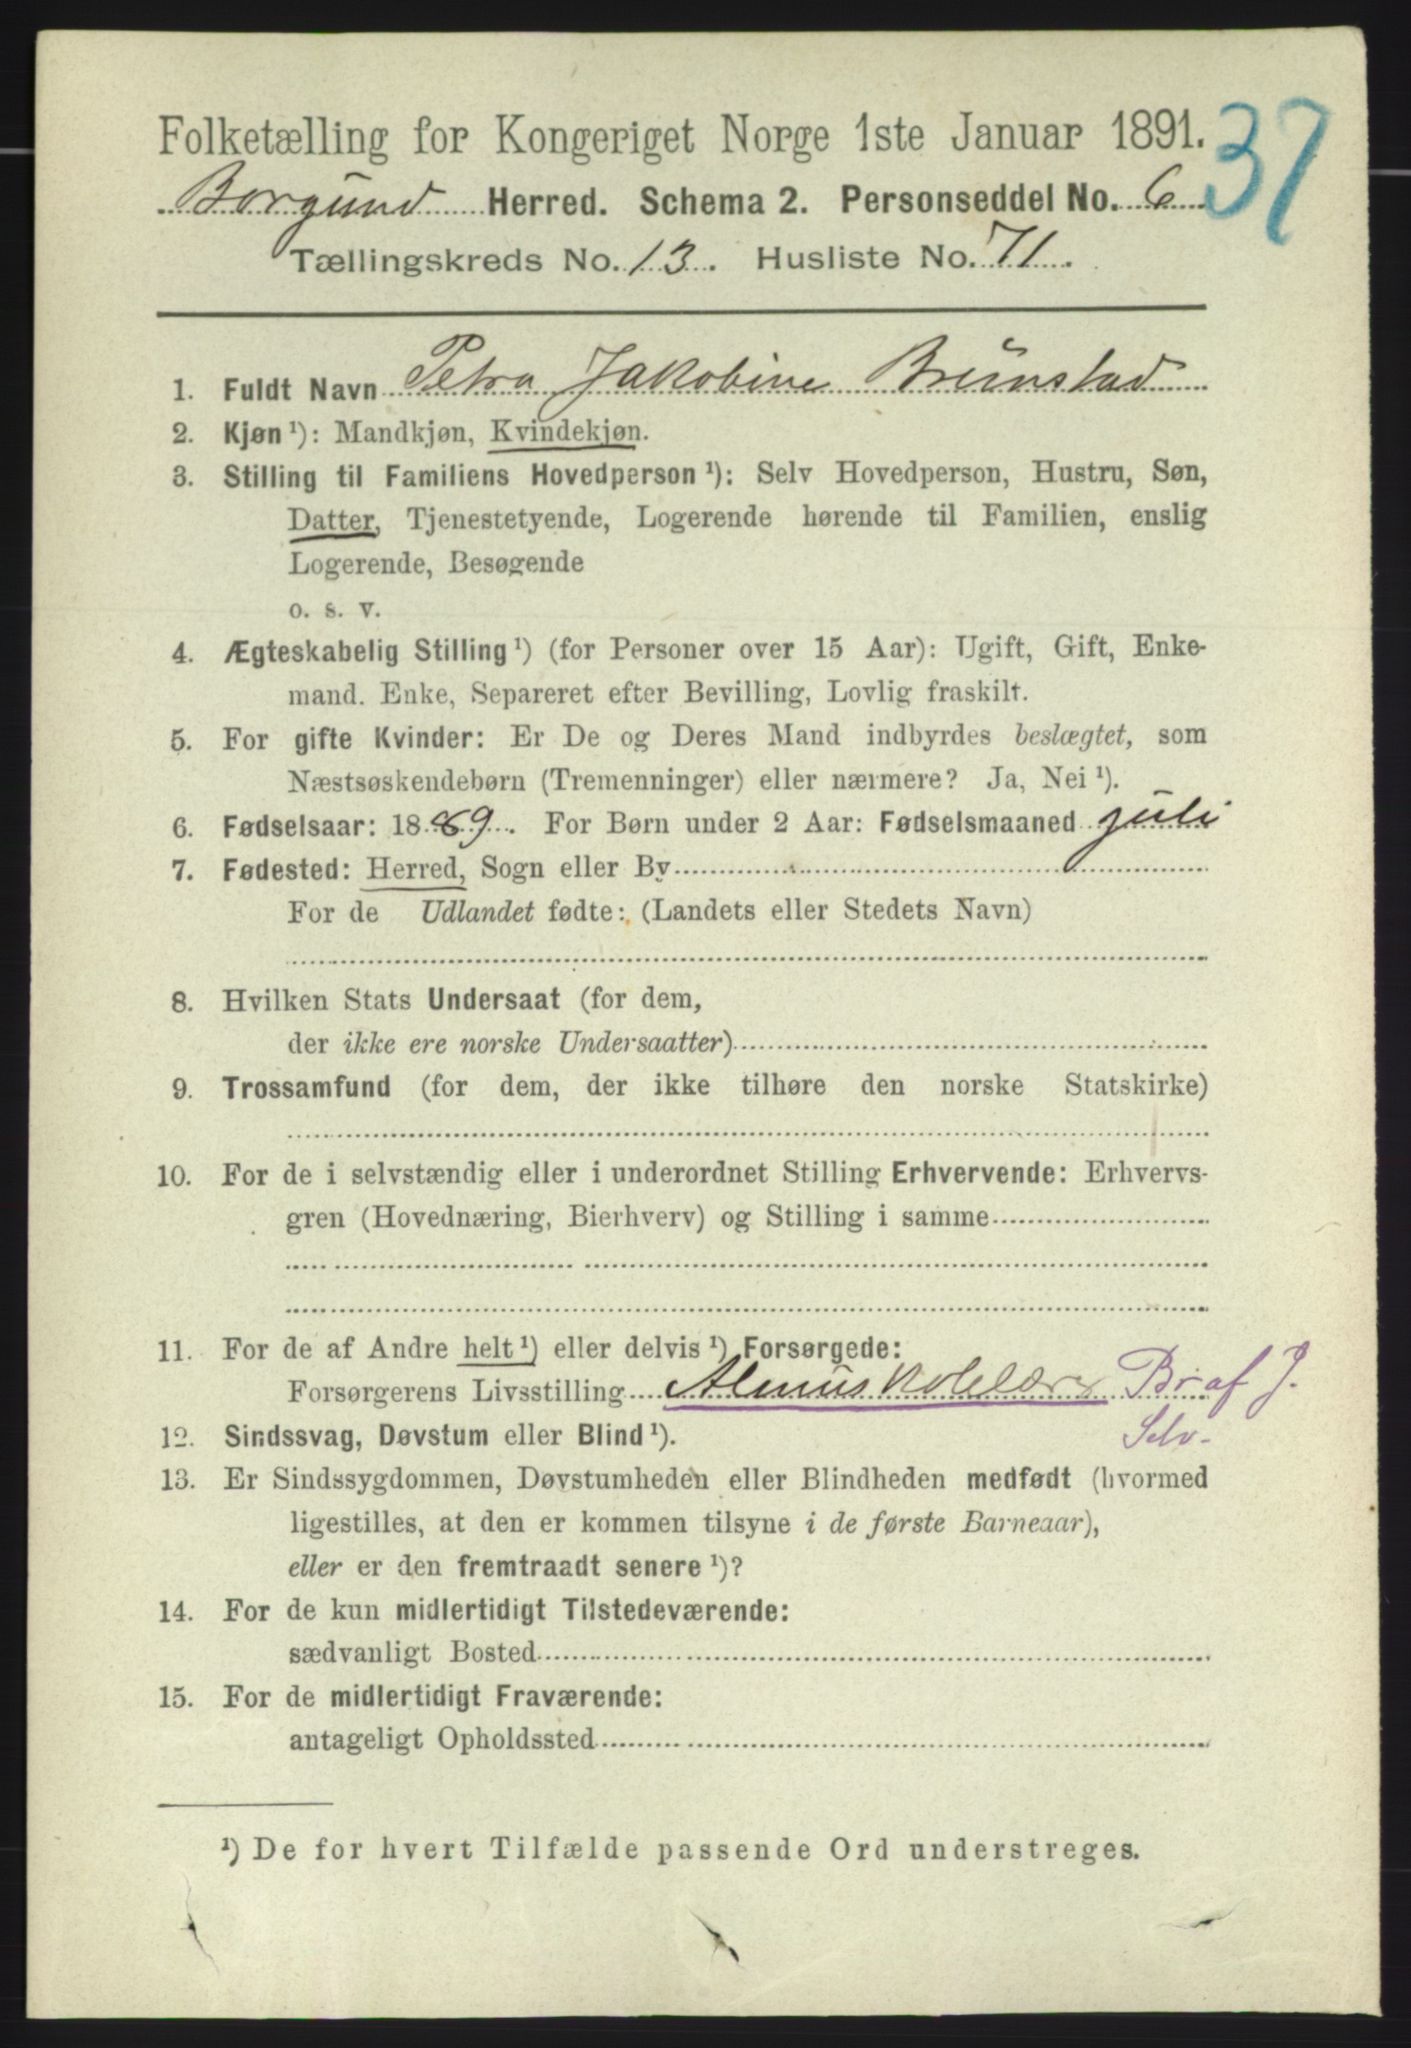 Folketælling for Kongeriget Norge 1ste Januar 1891. 37
Borgund Herred. Schema 2. Personseddel No. 6
Tællingskreds No. 13. Husliste No. 71.
1. Fuldt Navn Petra Jakobine Brunstad
2. Kjøn ¹): Mandkjøn, Kvindekjøn.
3. Stilling til Familiens Hovedperson ¹): Selv Hovedperson, Hustru, Søn,
Datter, Tjenestetyende, Logerende hørende til Familien, enslig
Logerende, Besøgende
o. s. v.
4. Ægteskabelig Stilling ¹) (for Personer over 15 Aar): Ugift, Gift, Enke-
mand. Enke, Separeret efter Bevilling, Lovlig fraskilt.
5. For gifte Kvinder: Er De og Deres Mand indbyrdes beslægtet, som
Næstsøskendebørn (Tremenninger) eller nærmere? Ja, Nei ¹).
6. Fødselsaar: 1889. For Børn under 2 Aar: Fødselsmaaned juli
7. Fødested: Herred, Sogn eller By
For de Udlandet fødte: (Landets eller Stedets Navn)
8. Hvilken Stats Undersaat (for dem,
der ikke ere norske Undersaatter)
9. Trossamfund (for dem, der ikke tilhøre den norske Statskirke)
10. For de i selvstændig eller i underordnet Stilling Erhvervende: Erhvervs-
gren (Hovednæring, Bierhverv) og Stilling i samme
11. For de af Andre helt ¹) eller delvis ¹) Forsørgede:
Forsørgerens Livsstilling Br af J.
12. Sindssvag, Døvstum eller Blind ¹). Selv-
13. Er Sindssygdommen, Døvstumheden eller Blindheden medfødt (hvormed
ligestilles, at den er kommen tilsyne i de første Barneaar),
eller er den fremtraadt senere ¹)?
14. For de kun midlertidigt Tilstedeværende:
sædvanligt Bosted
15. For de midlertidigt Fraværende:
antageligt Opholdssted
¹) De for hvert Tilfælde passende Ord understreges.